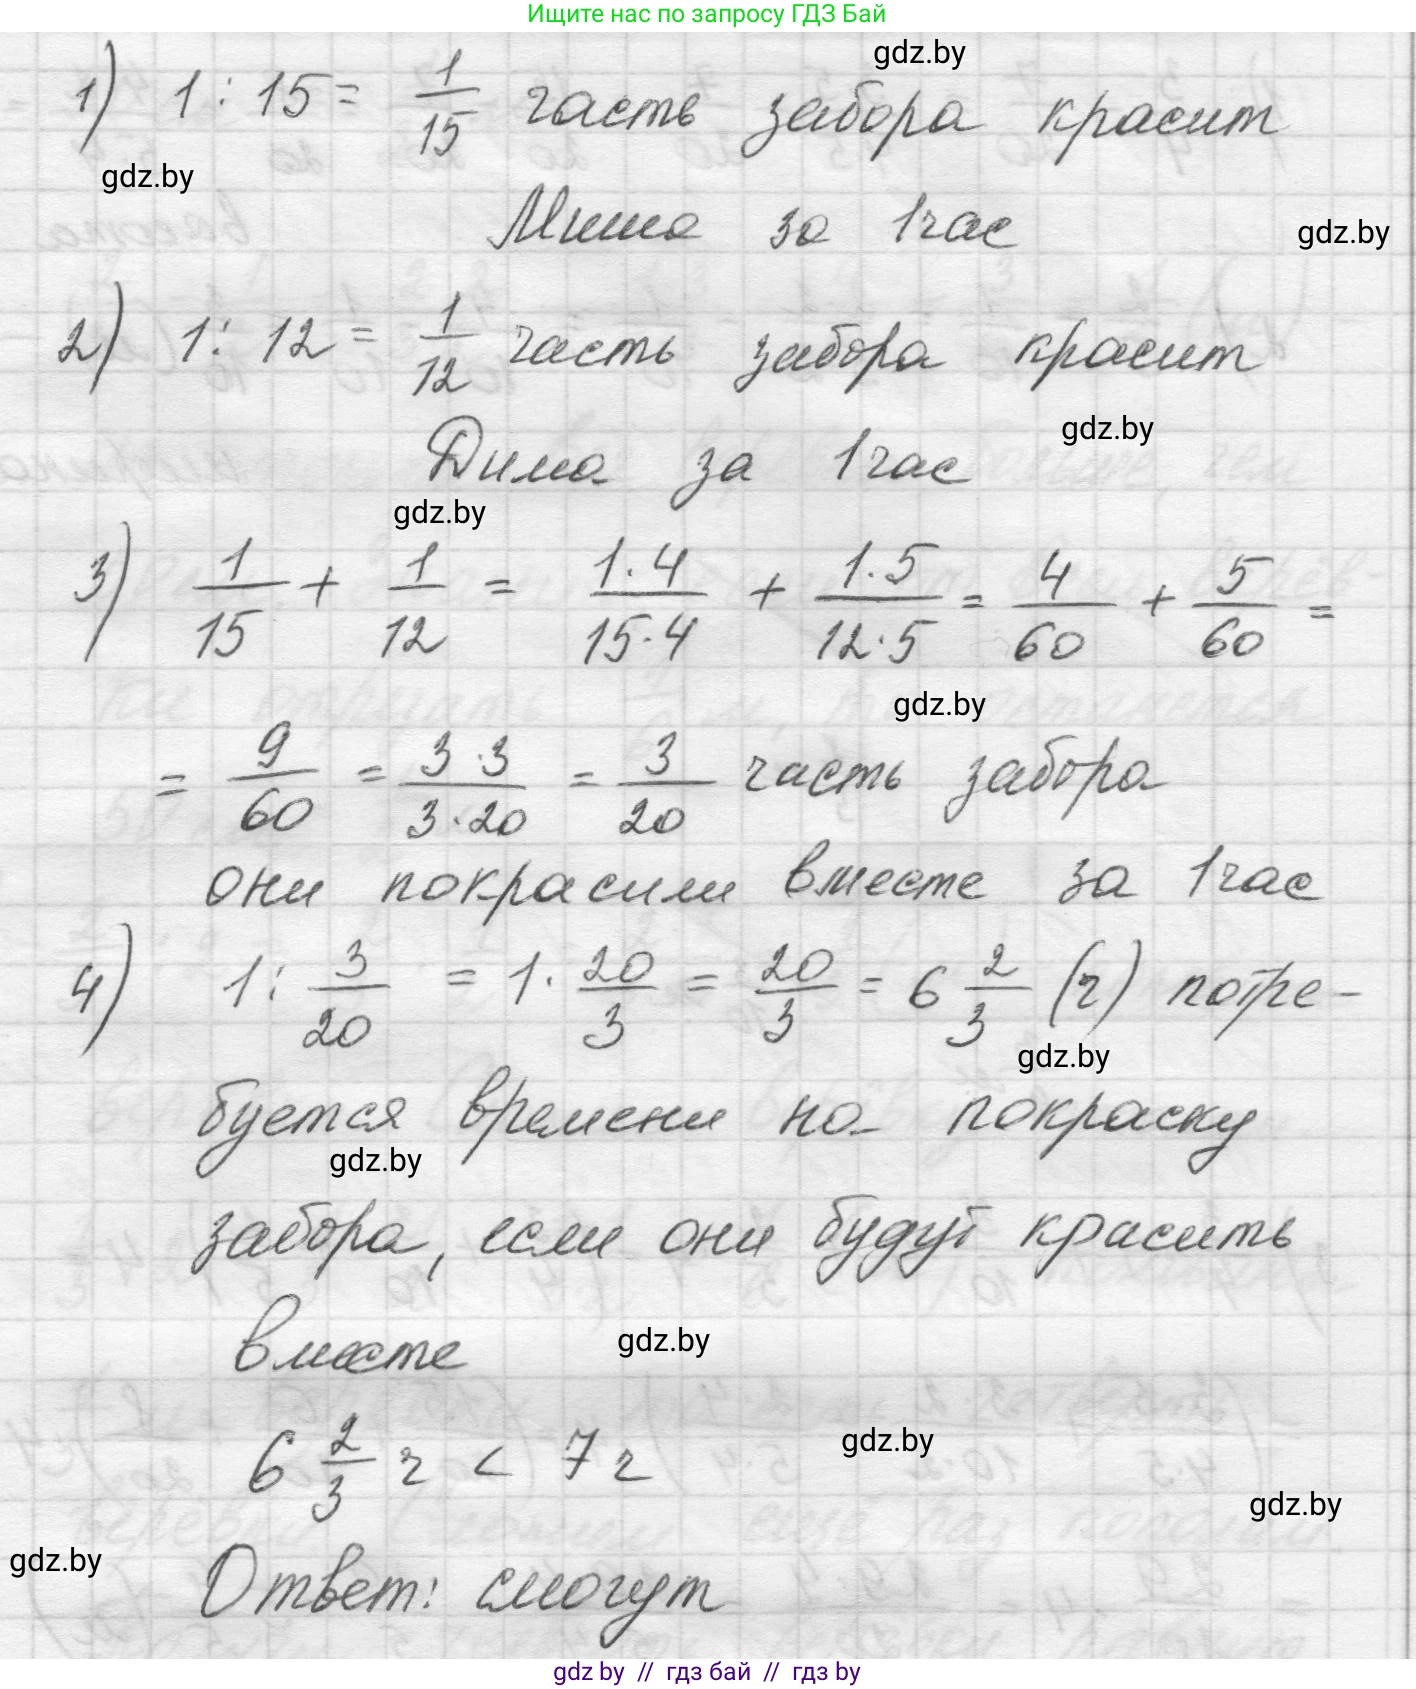 Ищите нас по запросу ГДЗ Бай
gdz.by
1) 1 : 15 = 1/15 часть забора красит
gdz.by
Миша за 1 час
gdz.by
2) 1 : 12 = 1/12 часть забора красит
gdz.by
Дима за 1 час
gdz.by
3) 1/15 + 1/12 = 1·4/15·4 + 1·5/12·5 = 4/60 + 5/60 =
gdz.by
= 9/60 = 3·3/3·20 = 3/20 часть забора
они покрасили вместе за 1 час
4) 1 : 3/20 = 1 · 20/3 = 20/3 = 6 2/3 (ч) потре-
gdz.by
буется времени на покраску
gdz.by
забора, если они будут красить
вместе
gdz.by
6 2/3 ч < 7 ч
gdz.by
gdz.by
gdz.by
Ответ: смогут
gdz by // гдз бай // гдз by